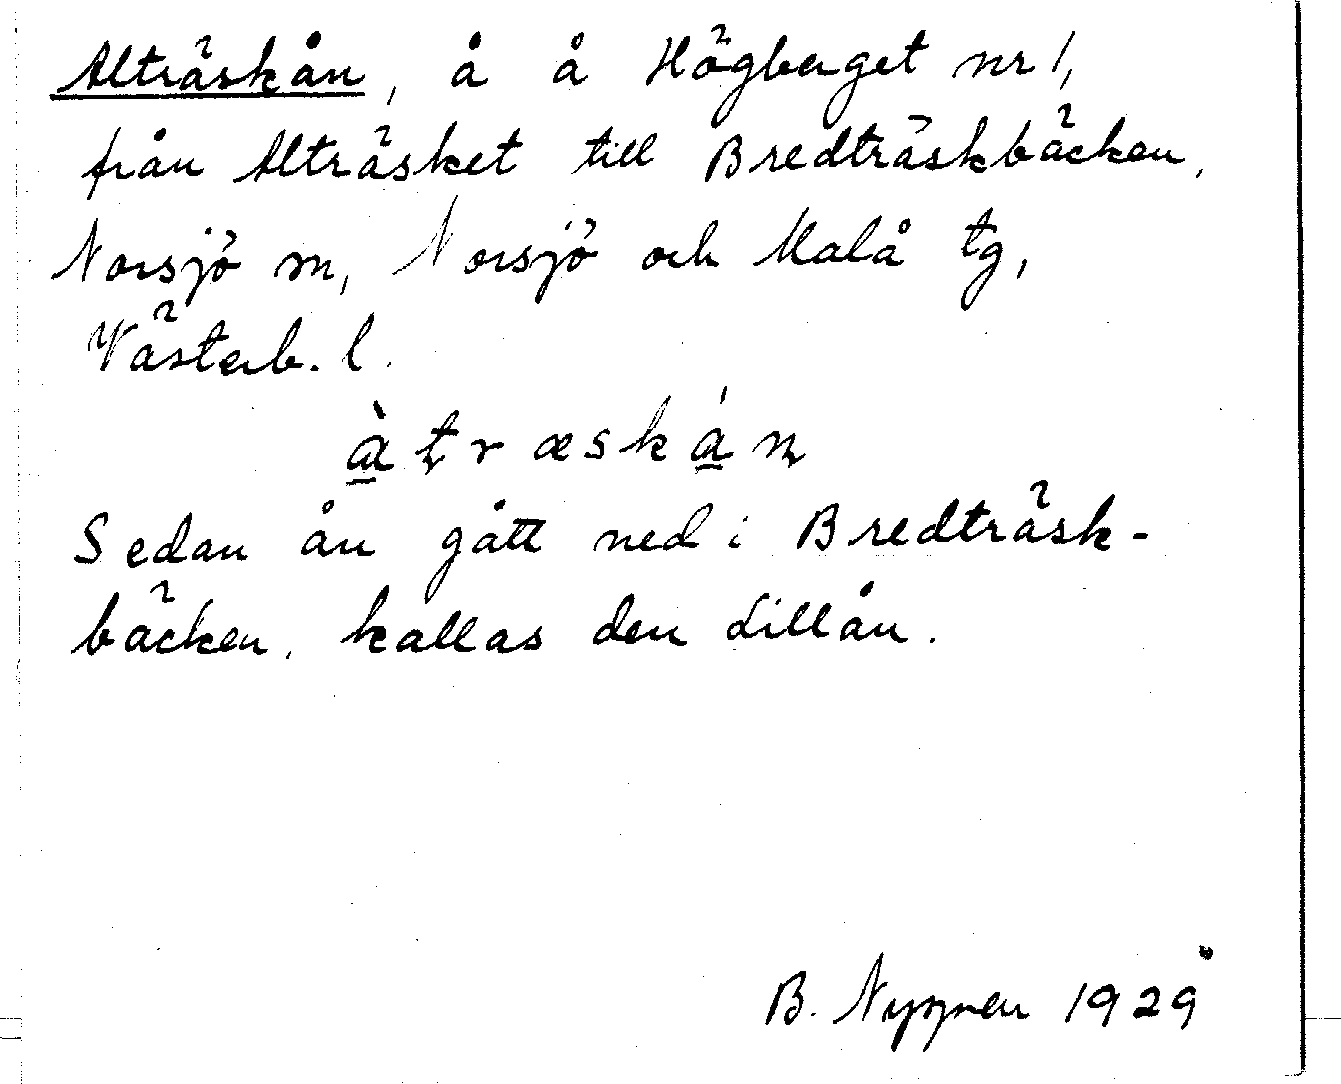 Alträskån, å å Högberget nr 1,
från Alträsket till Bredträskbäcken,
Norsjö sn, Norsjö och Malå tg,
Västerb. l.
à̱ t̩ r æ s k á̱ n̩
Sedan ån gått ned i Bredträsk-
bäcken, kallas den Lillån.
B. 1929